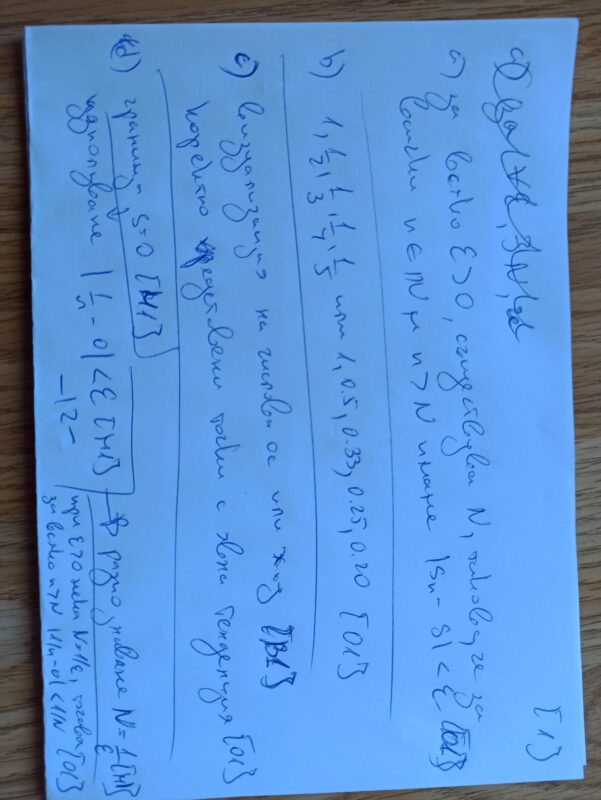 [1]
а) за всяко ε>0, съществува N, такова че за
всички n∈ℕ и n>N имаме |Sn - S| < ε
b) 1, 1/2, 1/3, 1/4, 1/5 или 1, 0.5, 0.33, 0.25, 0.20 [O1]
c) визуализация на числова ос или x-y [B1]
коректно представени точки с явна тенденция [O1]
d) граница S=0 [M1]
използване |1/n - 0| < ε [M1]
разпознаване N = 1/ε [M1]
при ε>0 нека N=1/ε, тогава
за всяко n>N |1/n-0|<1/N [O1]
-12-